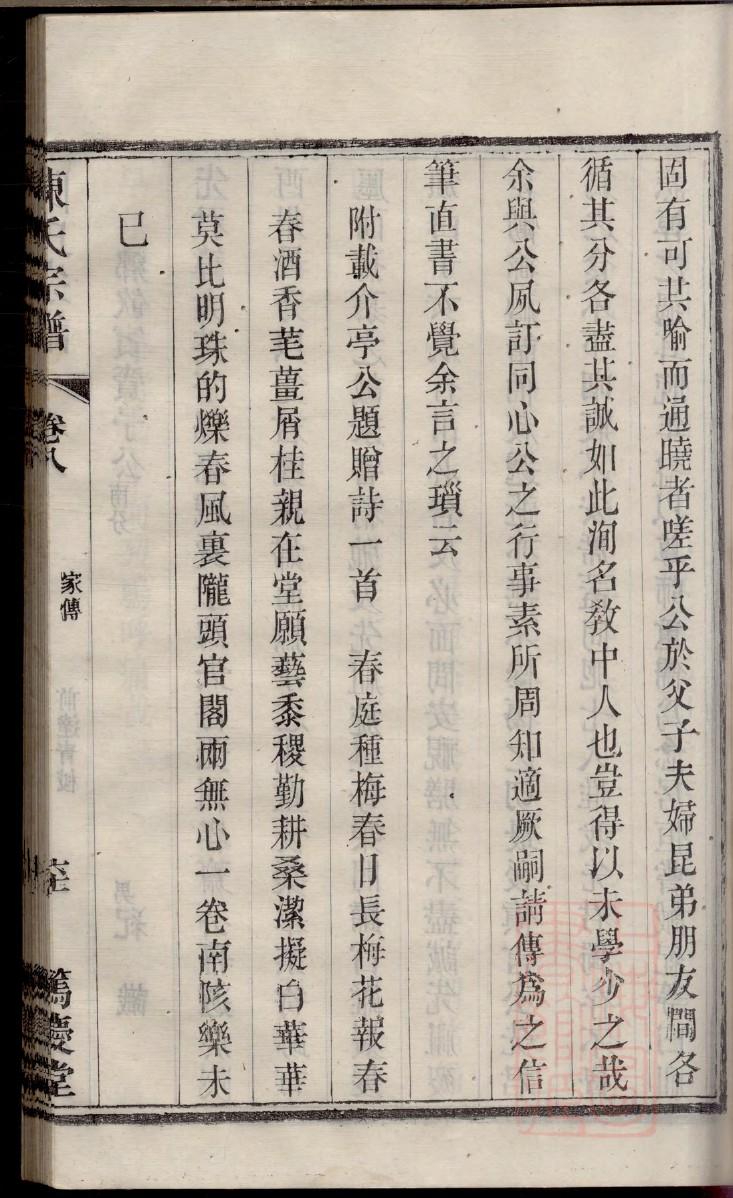 固有可共喻而通曉者嗟乎公於父子夫婦昆弟朋友間各
循其分各盡其誠如此洵名教中人也豈得以未學少之哉
余與公夙訂同心公之行事素所周知適厥嗣請傳爲之信
筆直書不覺余言之瑣云
附載介亭公題贈詩一首 春庭種梅春日長梅花報春
春酒香芼薑屑桂親在堂願藝黍稷勤耕桑潔擬白華華
莫比明珠的爍春風裏隴頭官閣兩無心一卷南陔樂未
已
陳氏宗譜 卷八 家傳 篤慶堂